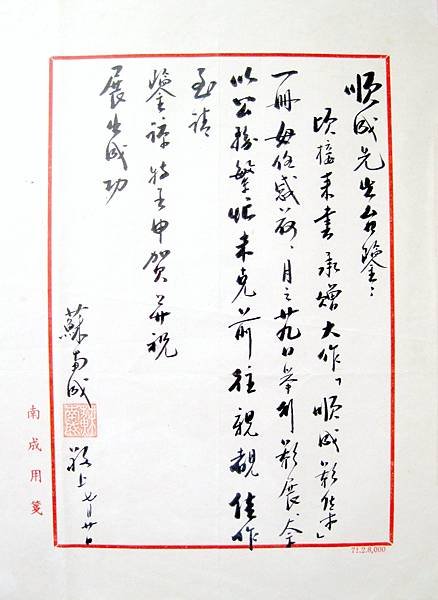 順成先生台鑒：
頃接来書承贈大作「順成影集」
一冊毋任感荷、月之廿九日舉行影展余
以公務繁忙未克前往親覩佳作
請
鑒諒特申賀並祝
展出成功
蘇南成
敬上七月廿日
南成用箋
71.2.8,000